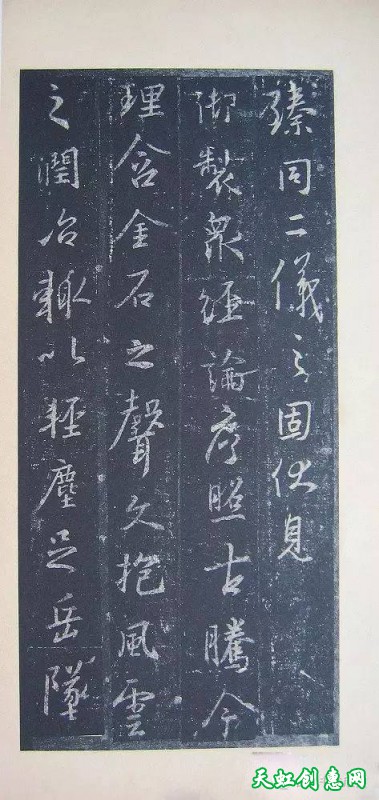 臻同二儀之固伏見
御製眾經論序照古騰今
理含金石之聲文抱風雲
之潤治輒以輕塵足岳墜
天虹创意网